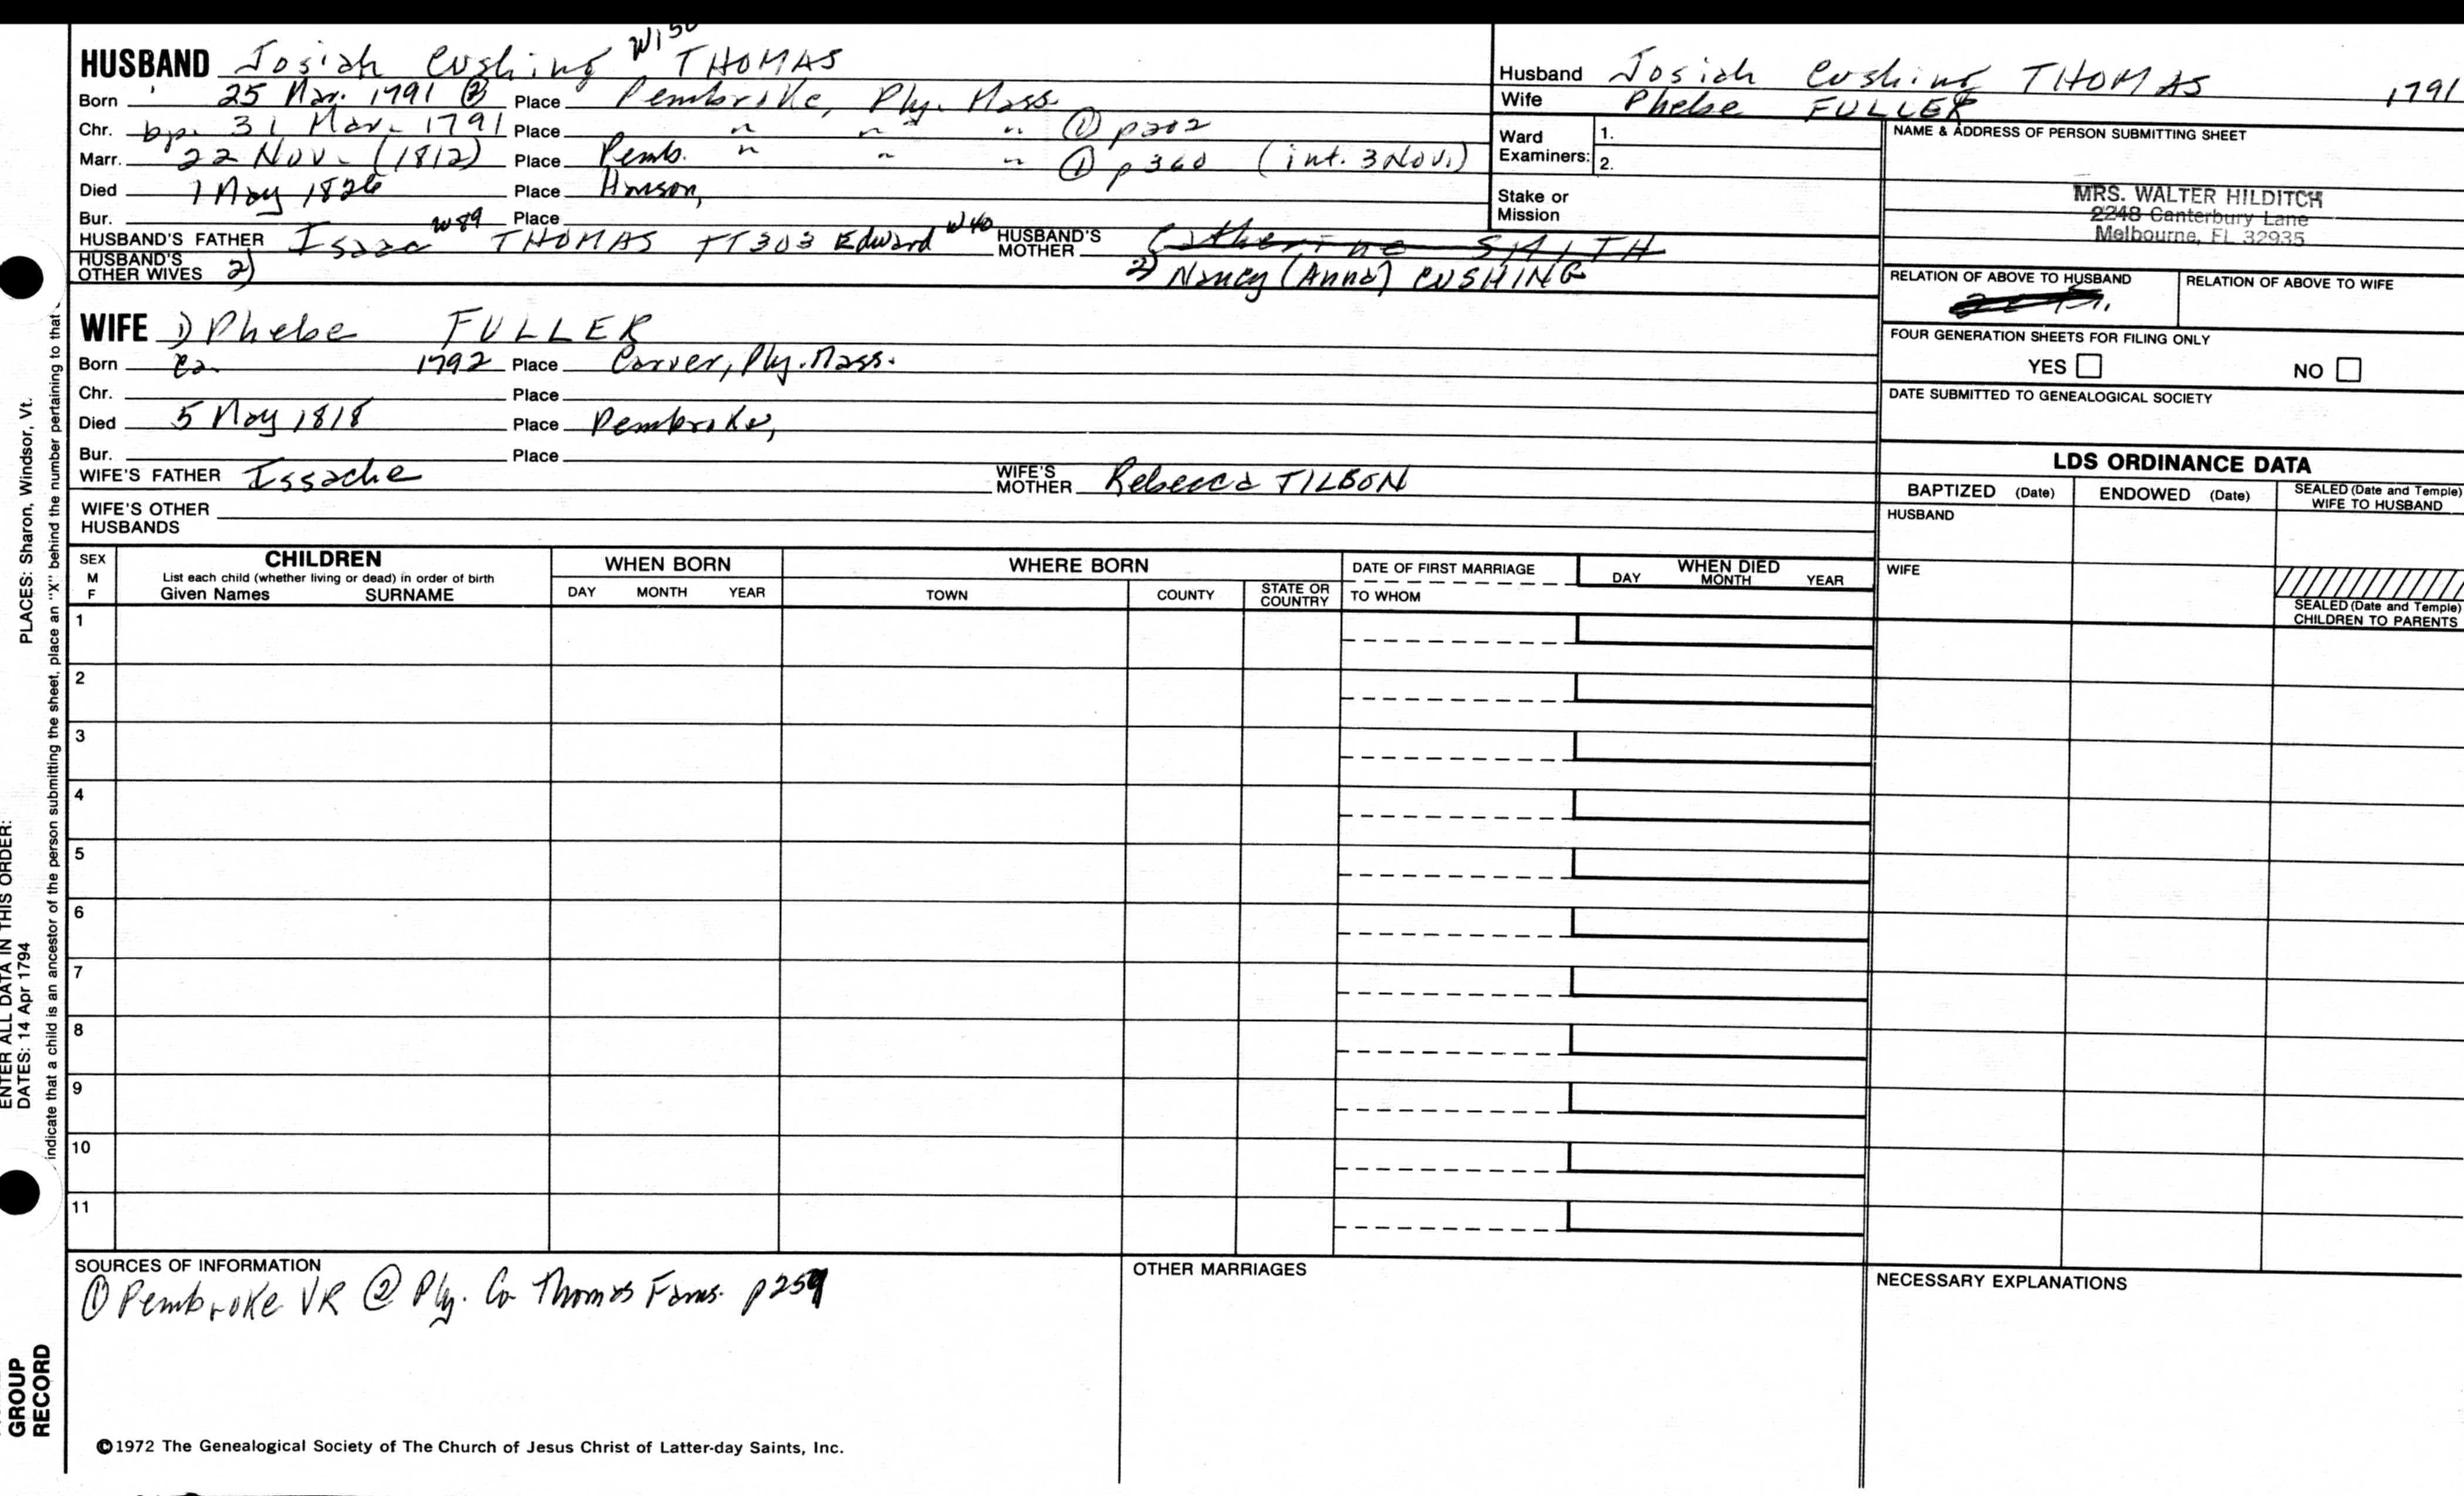 W150
HUSBAND Josiah Cushing THOMAS
Born 25 Mar. 1791 ② Place Pembroke, Ply. Mass.
Chr. bp. 31 Mar. 1791 Place " " " ① p202
Marr. 22 Nov. (1812) Place Pemb. " " " ① p360 (int. 3 Nov.)
Died 7 May 1826 Place Hanson,
Bur. Place
HUSBAND'S FATHER Isaac W89 THOMAS TT303 Edward W40 HUSBAND'S MOTHER Catherine SMITH
HUSBAND'S OTHER WIVES 2) 2) Nancy (Anna) CUSHING
WIFE 1) Phebe FULLER
Born Ca 1792 Place Carver, Ply. Mass.
Chr. Place
Died 5 May 1818 Place Pembroke,
Bur. Place
WIFE'S FATHER Issache WIFE'S MOTHER Rebecca TILSON
WIFE'S OTHER HUSBANDS
Husband Josiah Cushing THOMAS 1791
Wife Phebe FULLER
Ward Examiners: 1.
2.
Stake or Mission
NAME & ADDRESS OF PERSON SUBMITTING SHEET
MRS. WALTER HILDITCH
2248 Canterbury Lane
Melbourne, FL 32935
RELATION OF ABOVE TO HUSBAND RELATION OF ABOVE TO WIFE
FOUR GENERATION SHEETS FOR FILING ONLY
YES NO
DATE SUBMITTED TO GENEALOGICAL SOCIETY
LDS ORDINANCE DATA
BAPTIZED (Date) ENDOWED (Date) SEALED (Date and Temple) WIFE TO HUSBAND
HUSBAND
WIFE
SEALED (Date and Temple) CHILDREN TO PARENTS
SEX M F
CHILDREN
List each child (whether living or dead) in order of birth
Given Names SURNAME
WHEN BORN
DAY MONTH YEAR
WHERE BORN
TOWN COUNTY STATE OR COUNTRY
DATE OF FIRST MARRIAGE
TO WHOM
WHEN DIED
DAY MONTH YEAR
1
2
3
4
5
6
7
8
9
10
11
SOURCES OF INFORMATION
① Pembroke VR ② Ply. Co Thomas Fams. p259
OTHER MARRIAGES
NECESSARY EXPLANATIONS
©1972 The Genealogical Society of The Church of Jesus Christ of Latter-day Saints, Inc.
PLACES: Sharon, Windsor, Vt.
ENTER ALL DATA IN THIS ORDER:
DATES: 14 Apr 1794
indicate that a child is an ancestor of the person submitting the sheet, place an "X" behind the number pertaining to that
GROUP
RECORD